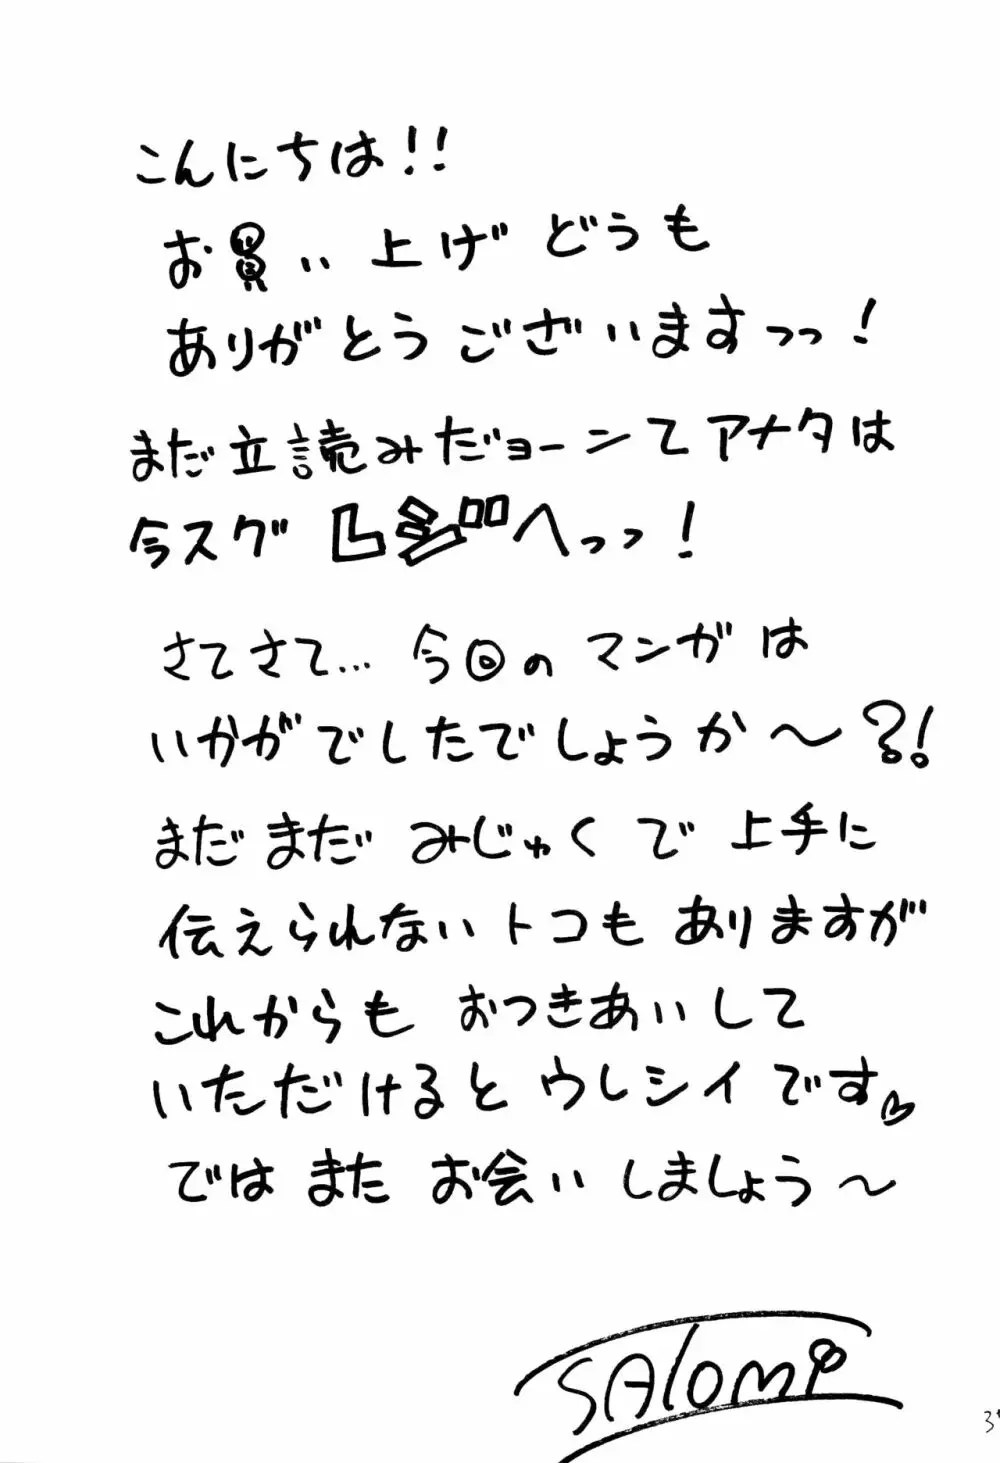 こんにちは!!
お買い上げ どうも
ありがとう ございますっっ!
まだ立読みだョーンて アナタは
今スグ レジへっっ!
さてさて… 今回の マンガは
いかがでしたでしょうか〜?!
まだまだ みじゅくで 上手に
伝えられないトコも ありますが
これからも おつきあいして
いただけると ウレシイです♡
では また お会い しましょう〜
SAlomi